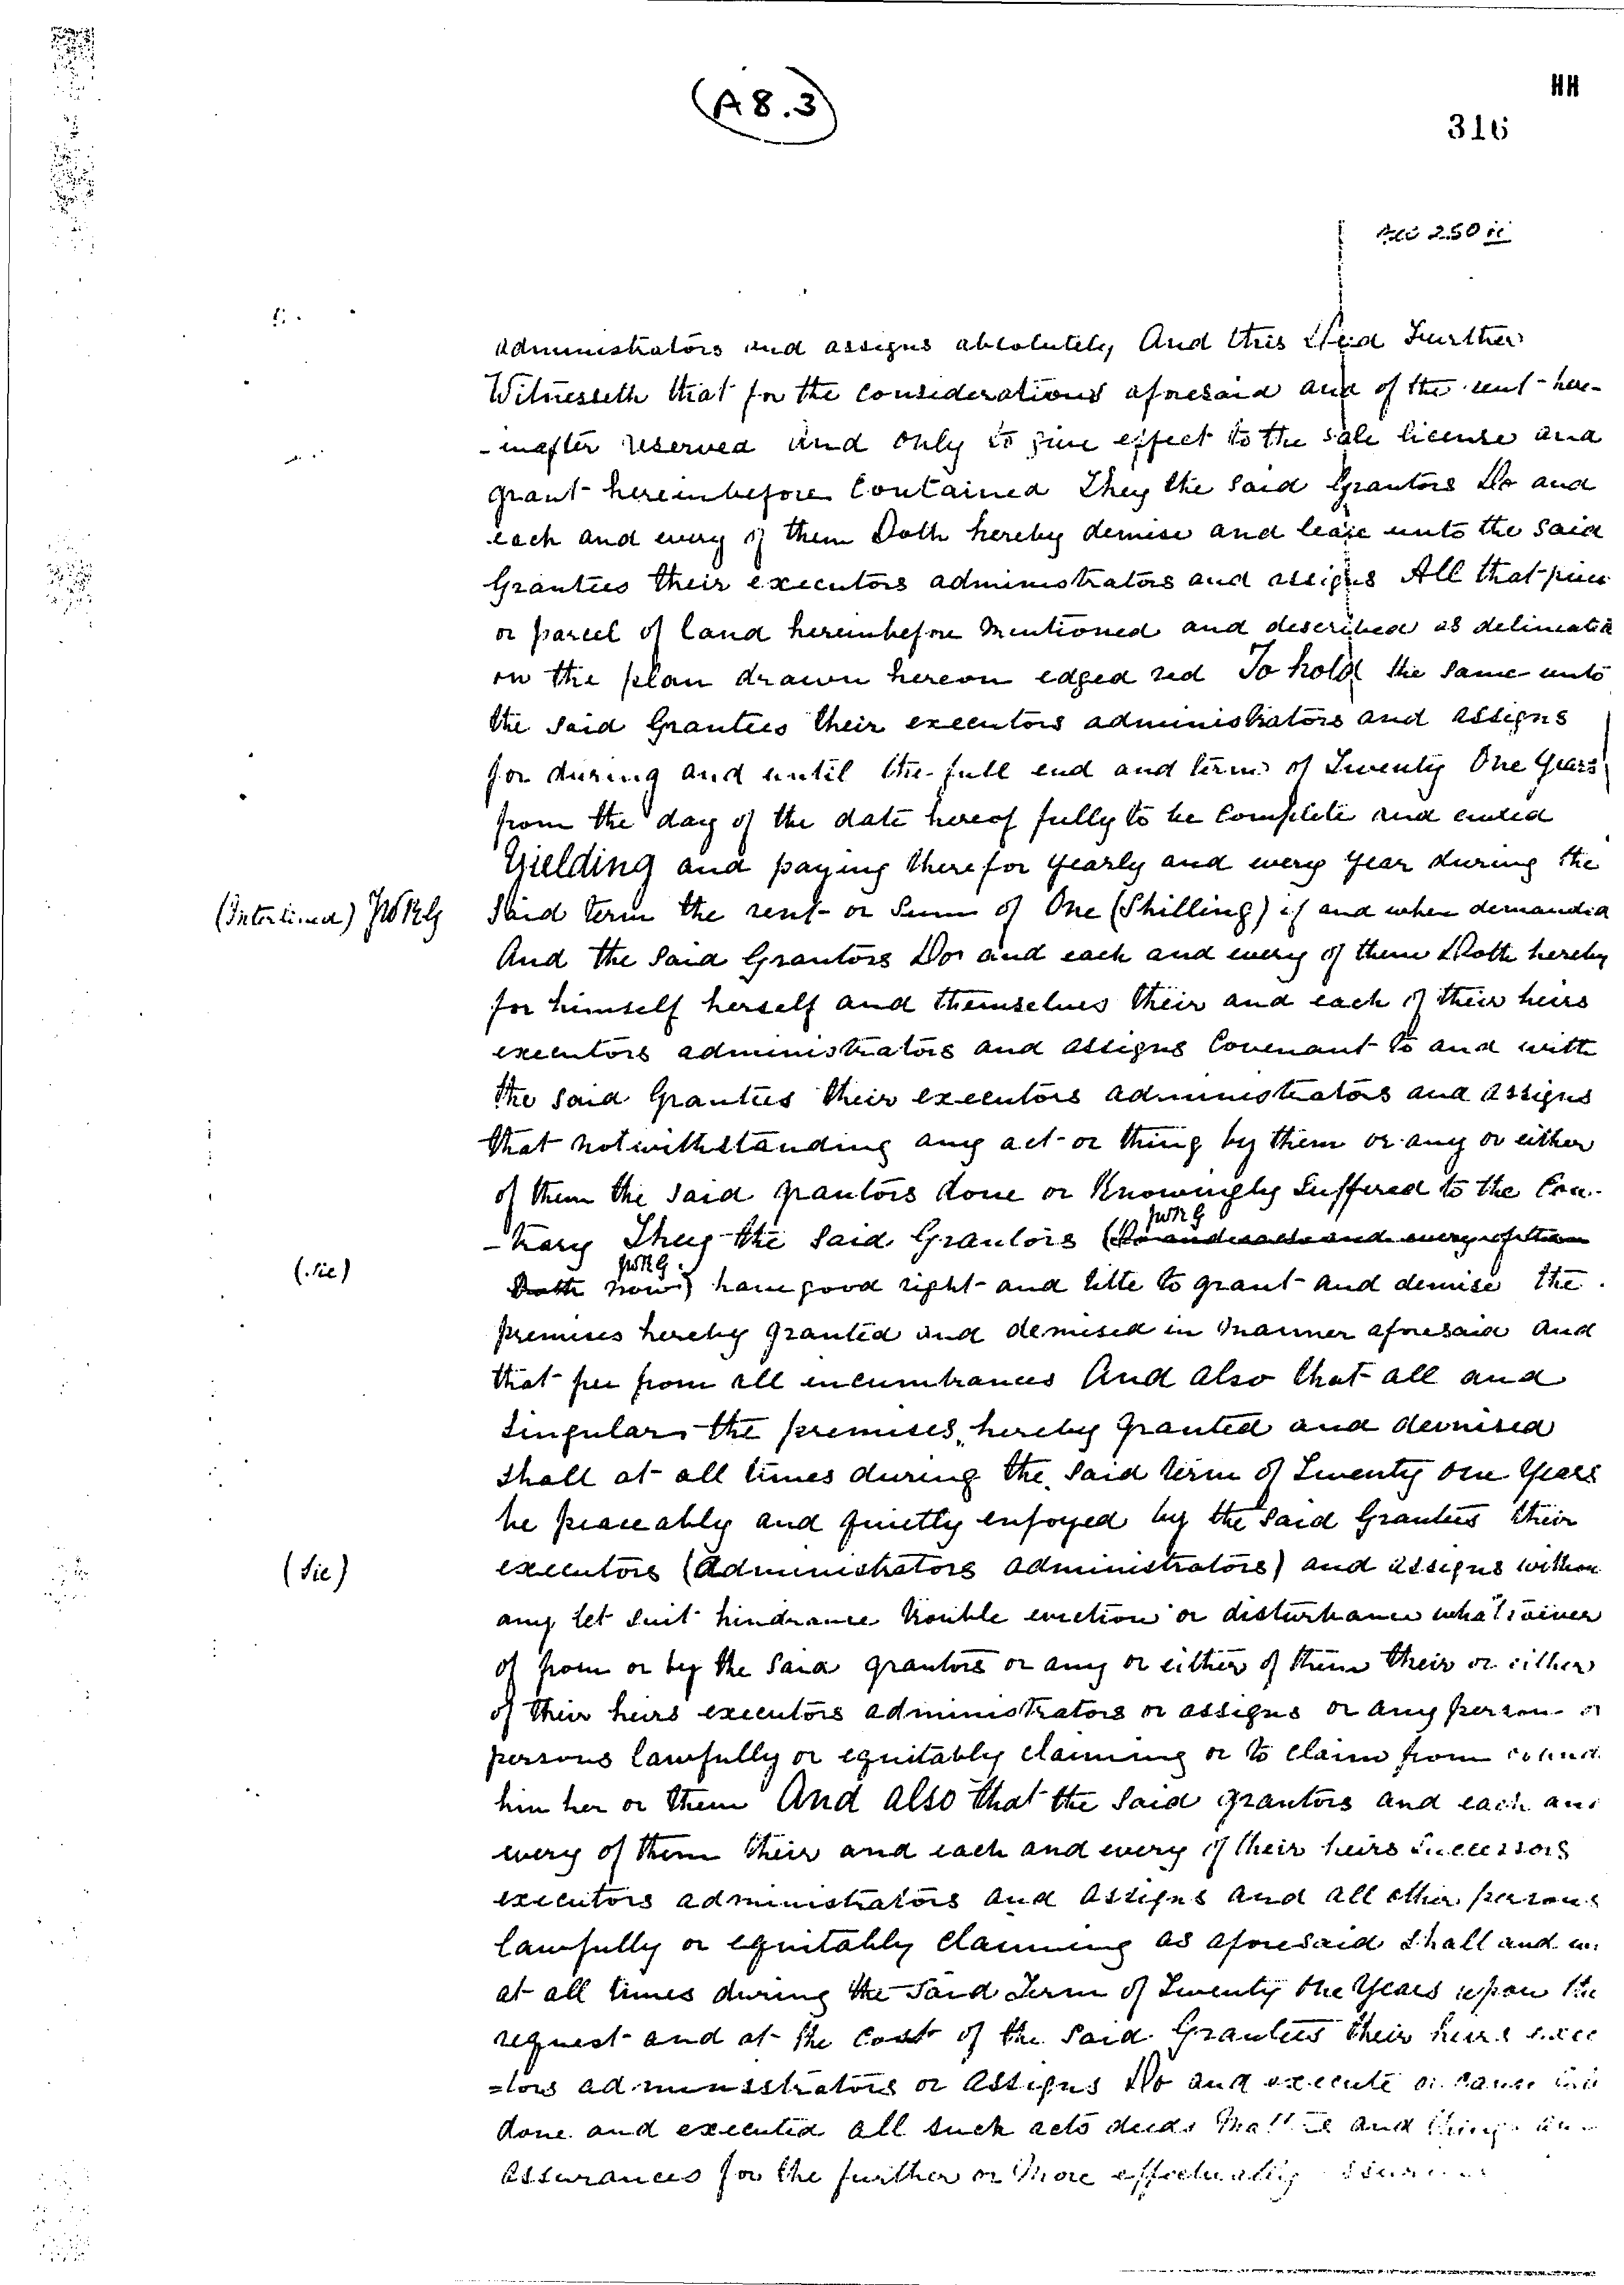 (A 8.3)
HH
316
250 ii
administrators and assigns absolutely And this Deed Further
Witnesseth that for the considerations aforesaid and of the rent here-
-inafter reserved and only to give effect to the sale license and
grant hereinbefore contained They the said Grantors Do and
each and every of them Doth hereby demise and lease unto the said
Grantees their executors administrators and assigns All that piece
or parcel of land hereinbefore mentioned and described as delineated
on the plan drawn hereon edged red To hold the same unto
the said Grantees their executors administrators and assigns
for during and until the full end and term of Twenty One Years
from the day of the date hereof fully to be complete and ended
Yielding and paying therefor yearly and every year during the
(Interlined) JWRG said term the rent or sum of One (Shilling) if and when demanded
And the said Grantors Do and each and every of them Doth hereby
for himself herself and themselves their and each of their heirs
executors administrators and assigns Covenant to and with
the said Grantees their executors administrators and assigns
that notwithstanding any act or thing by them or any or either
of them the said grantors done or knowingly suffered to the Con-
JWRG
-trary They the said Grantors (Do and each and every of them
JWRG
(sic) Doth now) have good right and title to grant and demise the
premises hereby granted and demised in manner aforesaid and
that free from all encumbrances And also that all and
singular the premises hereby granted and demised
shall at all times during the said term of Twenty one Years
be peaceably and quietly enjoyed by the said Grantees their
(Sic) executors (administrators administrators) and assigns
any let suit hindrance trouble eviction or disturbance whatsoever
of from or by the said grantors or any or either of them their or either
of their heirs executors administrators or assigns or any person or
persons lawfully or equitably claiming or to claim from
him her or them And also that the said grantors and each and
every of them their and each and every of their heirs successors
executors administrators and assigns and all other persons
lawfully or equitably claiming as aforesaid shall and
at all times during the said Term of Twenty One Years upon the
request and at the cost of the said Grantees their heirs
=tors administrators or assigns Do and execute or cause
done and executed all such acts deeds matters and things
assurances for the further or more effectually